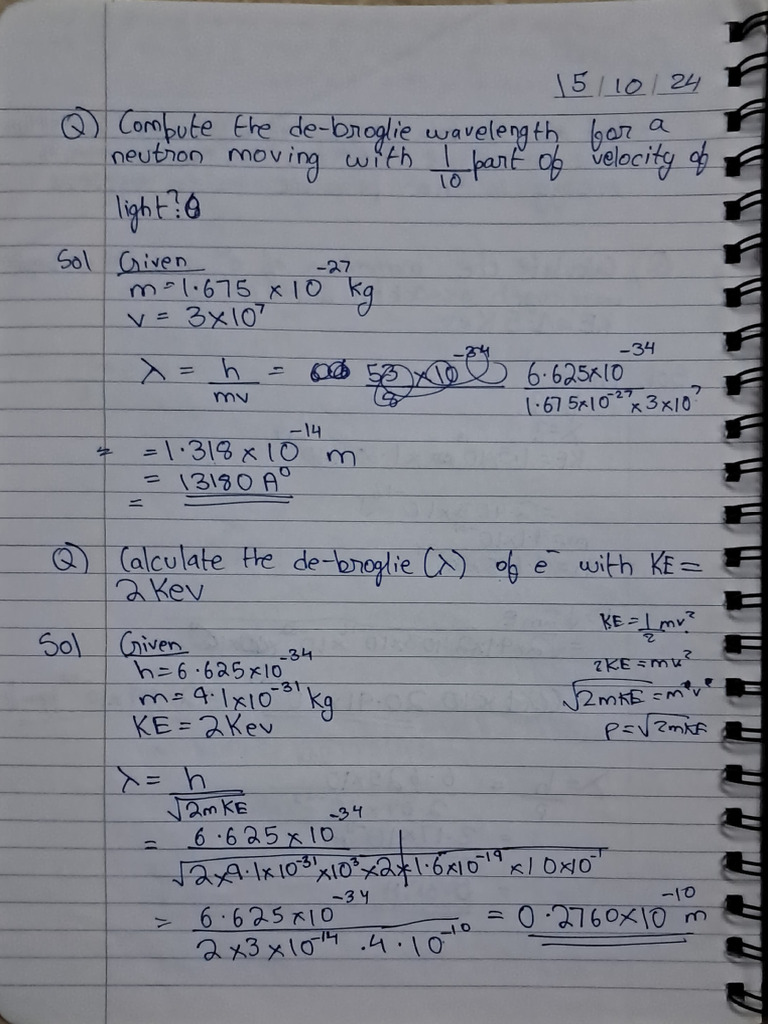 15/10/24
Q) Compute the de-broglie wavelength for a
neutron moving with 1/10 part of velocity of
light?
Sol Given
m = 1.675 × 10^-27 kg
v = 3×10^7
λ = h/mv = 6.625×10^-34 / 1.675×10^-27 × 3×10^7
= 1.318 × 10^-14 m
= 13180 A°
=
Q) Calculate the de-broglie (λ) of e^- with KE =
2 Kev
Sol Given
h = 6.625×10^-34
m = 9.1×10^-31 kg
KE = 2 Kev
KE = 1/2 mv²
2KE = mv²
√2mKE = m²v²
P = √2mKE
λ = h/√2m KE
= 6.625×10^-34 / √2×9.1×10^-31×10^3×2×1.6×10^-19×10×10^-1
= 6.625×10^-34 / 2×3×10^-14 .4.10^-10 = 0.2760×10^-10 m